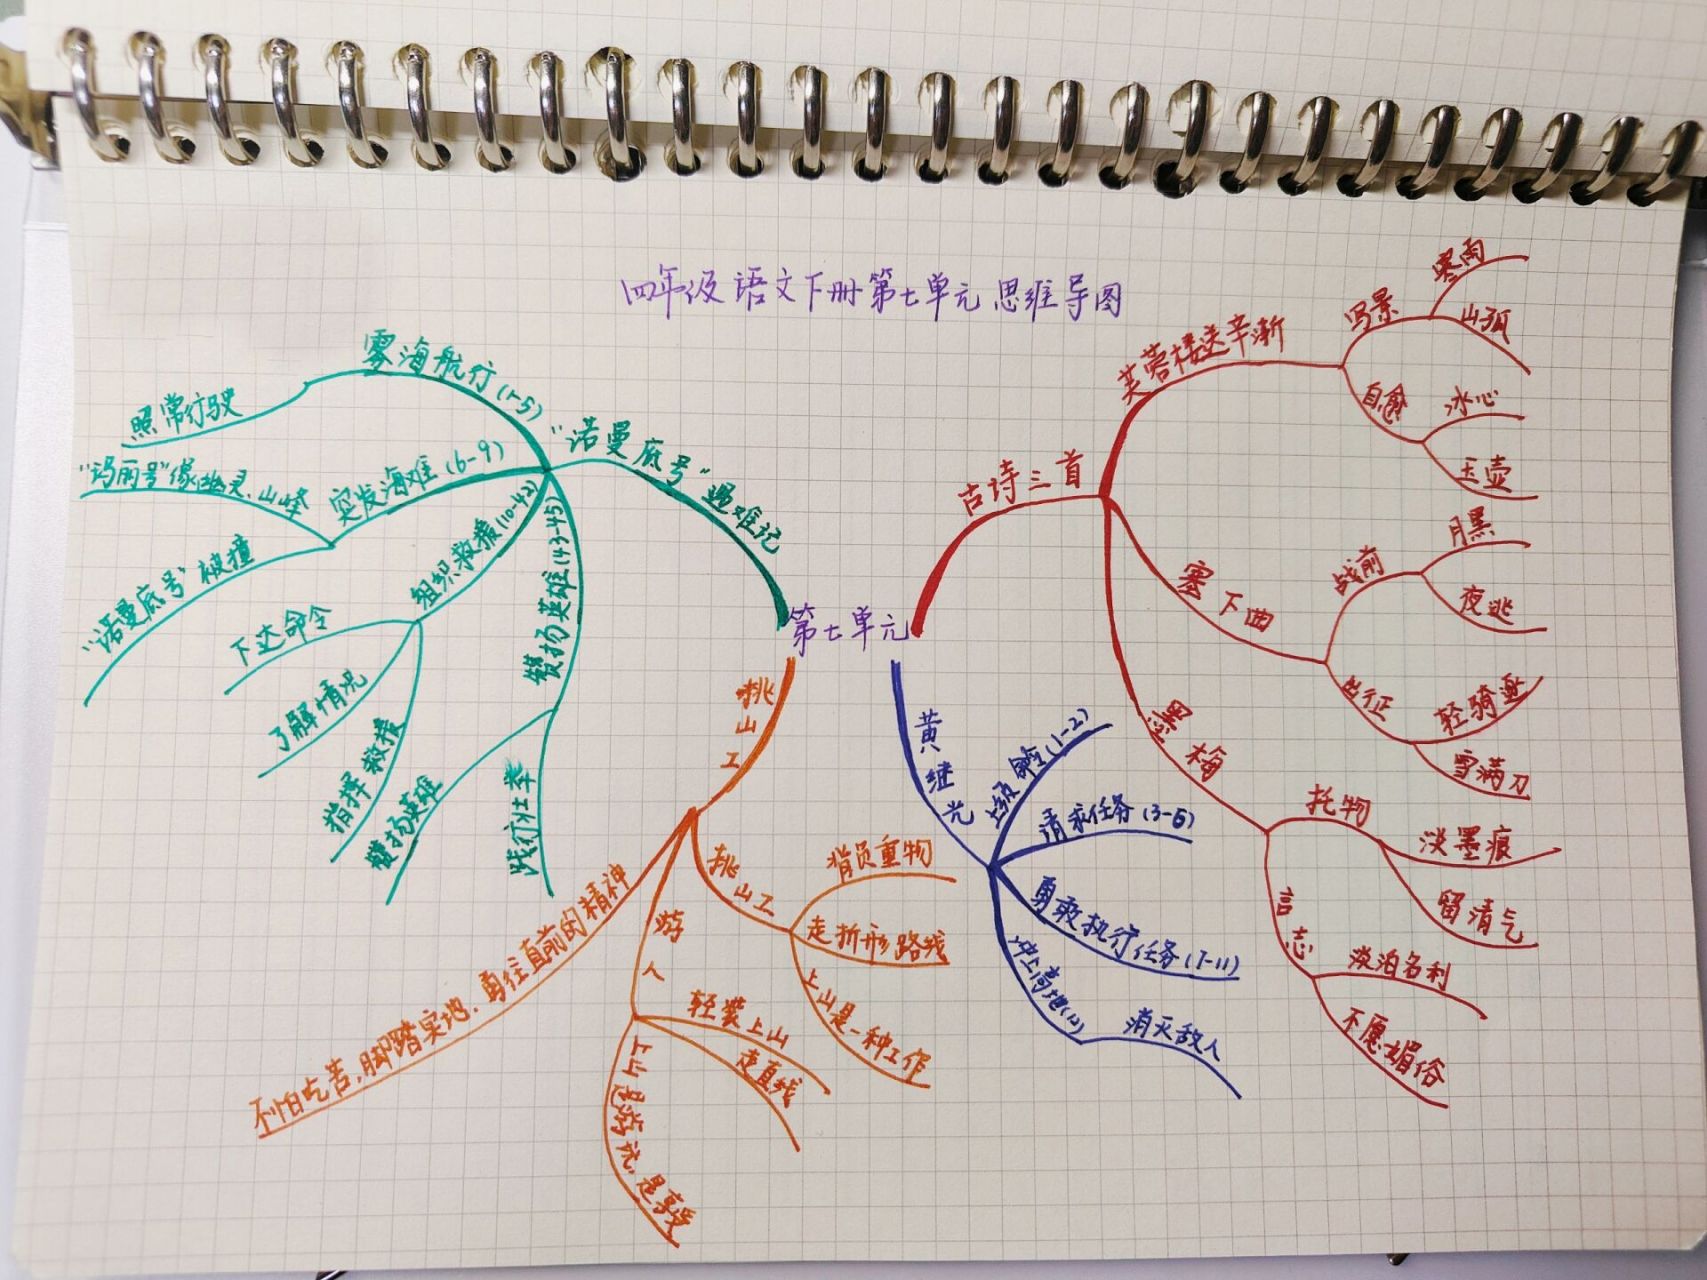 四年级语文下册第七单元思维导图
第七单元
古诗三首
芙蓉楼送辛渐
写景
寒雨
山孤
自喻
冰心
玉壶
塞下曲
战前
月黑
夜逃
出征
轻骑逐
雪满刀
墨梅
托物
淡墨痕
留清气
言志
淡泊名利
不愿媚俗
黄继光
上级命令(1-2)
请求任务(3-6)
勇敢执行任务(7-11)
冲上高地(12)
消灭敌人
挑山工
挑山工
背负重物
走折形路线
上山是一种工作
游人
轻装上山
走直线
上山是游玩,是享受
不怕吃苦,脚踏实地,勇往直前的精神
“诺曼底号”遇难记
雾海航行(1-5)
照常行驶
突发海难(6-9)
“玛丽号”像幽灵、山峰
“诺曼底号”被撞
组织救援(10-42)
下达命令
了解情况
指挥救援
赞扬英雄(43-45)
赞扬英雄
践行壮举